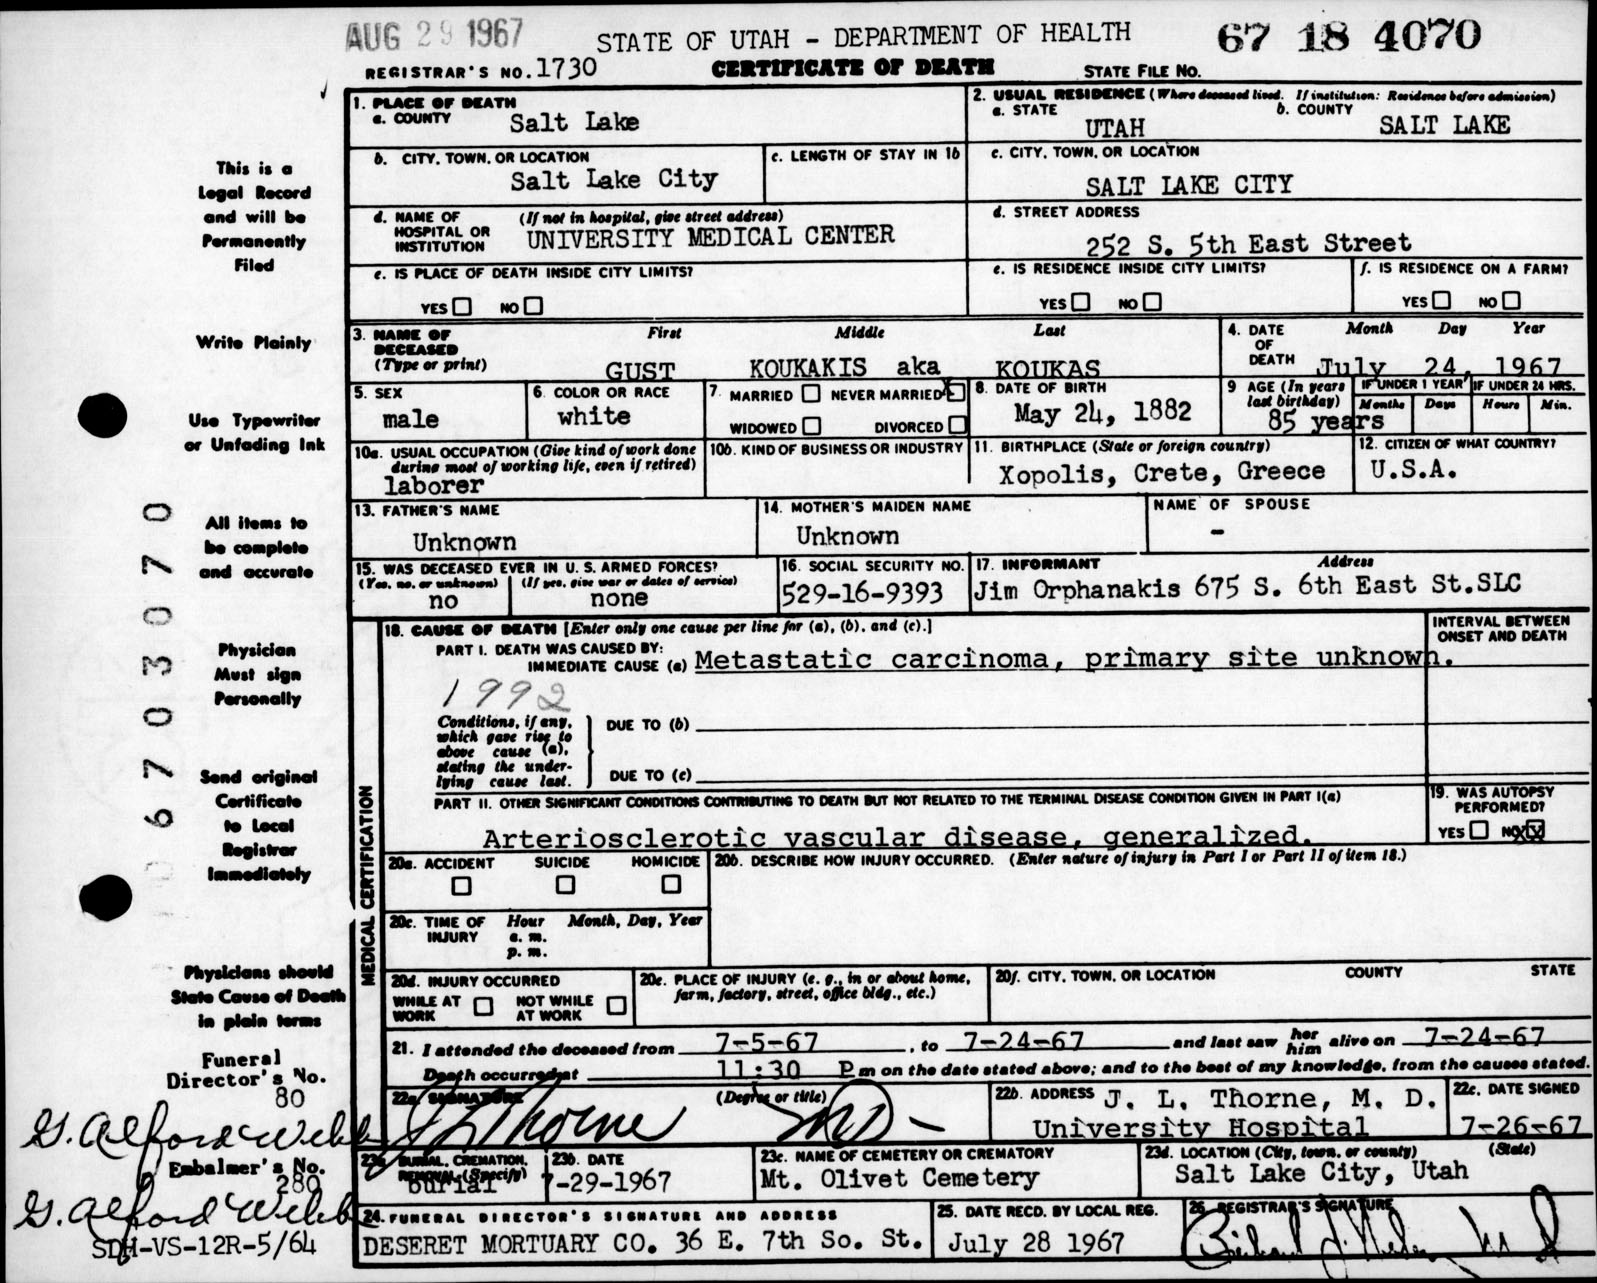 AUG 29 1967
STATE OF UTAH - DEPARTMENT OF HEALTH
67 18 4070
REGISTRAR'S NO. 1730
CERTIFICATE OF DEATH
STATE FILE NO.
This is a
Legal Record
and will be
Permanently
Filed
Write Plainly
Use Typewriter
or Unfading Ink
All items to
be complete
and accurate
Physician
Must sign
Personally
Send original
Certificate
to Local
Registrar
Immediately
Physicians should
State Cause of Death
in plain terms
Funeral
Director's No.
80
G. Alford Webb
Embalmer's No.
280
G. Alford Webb
SDH-VS-12R-5/64
0 6 7 0 3 0 7 0
1. PLACE OF DEATH
a. COUNTY Salt Lake
2. USUAL RESIDENCE (Where deceased lived. If institution: Residence before admission)
a. STATE UTAH b. COUNTY SALT LAKE
b. CITY, TOWN, OR LOCATION
Salt Lake City
c. LENGTH OF STAY IN 1b
c. CITY, TOWN, OR LOCATION
SALT LAKE CITY
d. NAME OF HOSPITAL OR INSTITUTION (If not in hospital, give street address)
UNIVERSITY MEDICAL CENTER
d. STREET ADDRESS
252 S. 5th East Street
e. IS PLACE OF DEATH INSIDE CITY LIMITS?
YES NO
e. IS RESIDENCE INSIDE CITY LIMITS?
YES NO
f. IS RESIDENCE ON A FARM?
YES NO
3. NAME OF DECEASED (Type or print)
First Middle Last
GUST KOUKAKIS aka KOUKAS
4. DATE OF DEATH Month Day Year
July 24, 1967
5. SEX
male
6. COLOR OR RACE
white
7. MARRIED NEVER MARRIED X
WIDOWED DIVORCED
8. DATE OF BIRTH
May 24, 1882
9 AGE (In years last birthday)
85 years
IF UNDER 1 YEAR IF UNDER 24 HRS.
Months Days Hours Min.
10a. USUAL OCCUPATION (Give kind of work done during most of working life, even if retired)
laborer
10b. KIND OF BUSINESS OR INDUSTRY
11. BIRTHPLACE (State or foreign country)
Xopolis, Crete, Greece
12. CITIZEN OF WHAT COUNTRY?
U.S.A.
13. FATHER'S NAME
Unknown
14. MOTHER'S MAIDEN NAME
Unknown
NAME OF SPOUSE
-
15. WAS DECEASED EVER IN U. S. ARMED FORCES?
(Yes, no, or unknown) (If yes, give war or dates of service)
no none
16. SOCIAL SECURITY NO.
529-16-9393
17. INFORMANT Address
Jim Orphanakis 675 S. 6th East St.SLC
MEDICAL CERTIFICATION
18. CAUSE OF DEATH [Enter only one cause per line for (a), (b), and (c).]
INTERVAL BETWEEN ONSET AND DEATH
PART I. DEATH WAS CAUSED BY:
IMMEDIATE CAUSE (a) Metastatic carcinoma, primary site unknown.
1992
Conditions, if any, which gave rise to above cause (a), stating the underlying cause last.
DUE TO (b)
DUE TO (c)
PART II. OTHER SIGNIFICANT CONDITIONS CONTRIBUTING TO DEATH BUT NOT RELATED TO THE TERMINAL DISEASE CONDITION GIVEN IN PART I(a)
Arteriosclerotic vascular disease, generalized.
19. WAS AUTOPSY PERFORMED?
YES NO XX
20a. ACCIDENT SUICIDE HOMICIDE
20b. DESCRIBE HOW INJURY OCCURRED. (Enter nature of injury in Part I or Part II of item 18.)
20c. TIME OF INJURY Hour Month, Day, Year
a. m.
p. m.
20d. INJURY OCCURRED
WHILE AT WORK NOT WHILE AT WORK
20e. PLACE OF INJURY (e. g., in or about home, farm, factory, street, office bldg., etc.)
20f. CITY, TOWN, OR LOCATION COUNTY STATE
21. I attended the deceased from 7-5-67, to 7-24-67 and last saw her him alive on 7-24-67
Death occurred at 11:30 P m on the date stated above; and to the best of my knowledge, from the causes stated.
22a SIGNATURE (Degree or title)
J L Thorne MD-
22b. ADDRESS J. L. Thorne, M. D.
University Hospital
22c. DATE SIGNED
7-26-67
23a BURIAL, CREMATION, REMOVAL (Specify)
burial
23b. DATE
7-29-1967
23c. NAME OF CEMETERY OR CREMATORY
Mt. Olivet Cemetery
23d. LOCATION (City, town, or county) (State)
Salt Lake City, Utah
24. FUNERAL DIRECTOR'S SIGNATURE AND ADDRESS
DESERET MORTUARY CO. 36 E. 7th So. St.
25. DATE RECD. BY LOCAL REG.
July 28 1967
26 REGISTRAR'S SIGNATURE